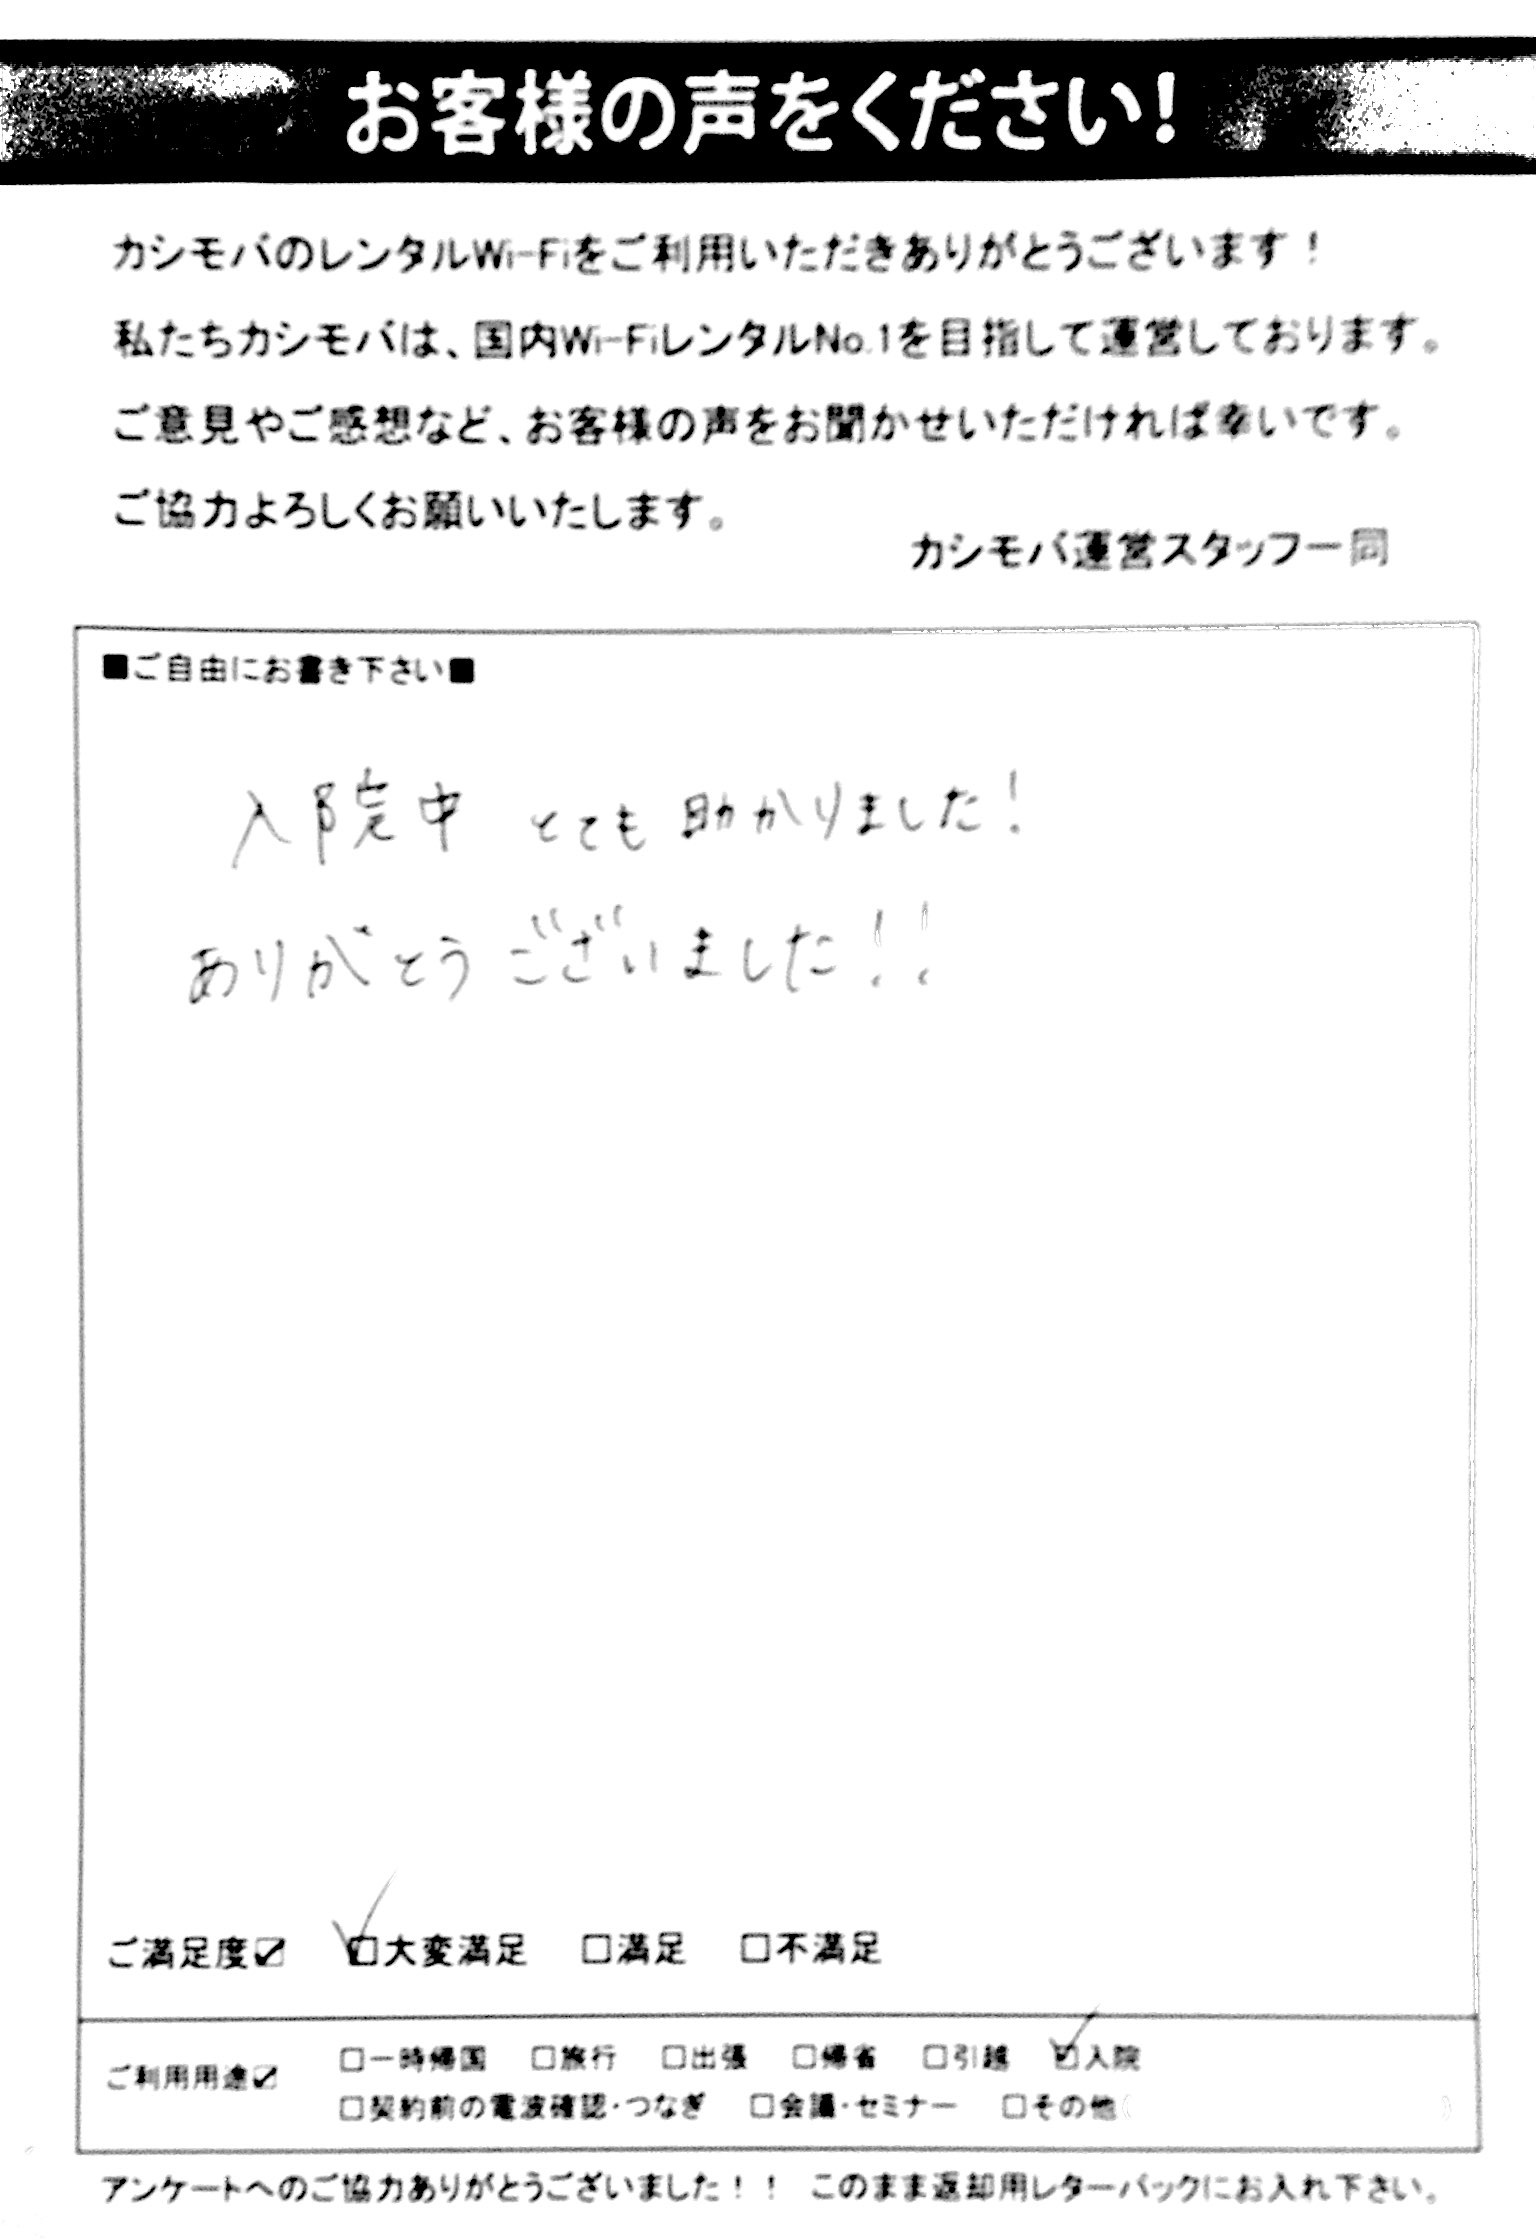 お客様の声をください!
カシモバのレンタルWi-Fiをご利用いただきありがとうございます！
私たちカシモバは、国内Wi-FiレンタルNo.1を目指して運営しております。
ご意見やご感想など、お客様の声をお聞かせいただければ幸いです。
ご協力よろしくお願いいたします。
カシモバ運営スタッフ一同
■ご自由にお書き下さい■
入院中 とても 助かりました！
ありがとうございました！！
ご満足度☑ ☑大変満足 □満足 □不満足
ご利用用途☑ □一時帰国 □旅行 □出張 □帰省 □引越 ☑入院
□契約前の電波確認・つなぎ □会議・セミナー □その他( )
アンケートへのご協力ありがとうございました！！ このまま返却用レターパックにお入れ下さい。